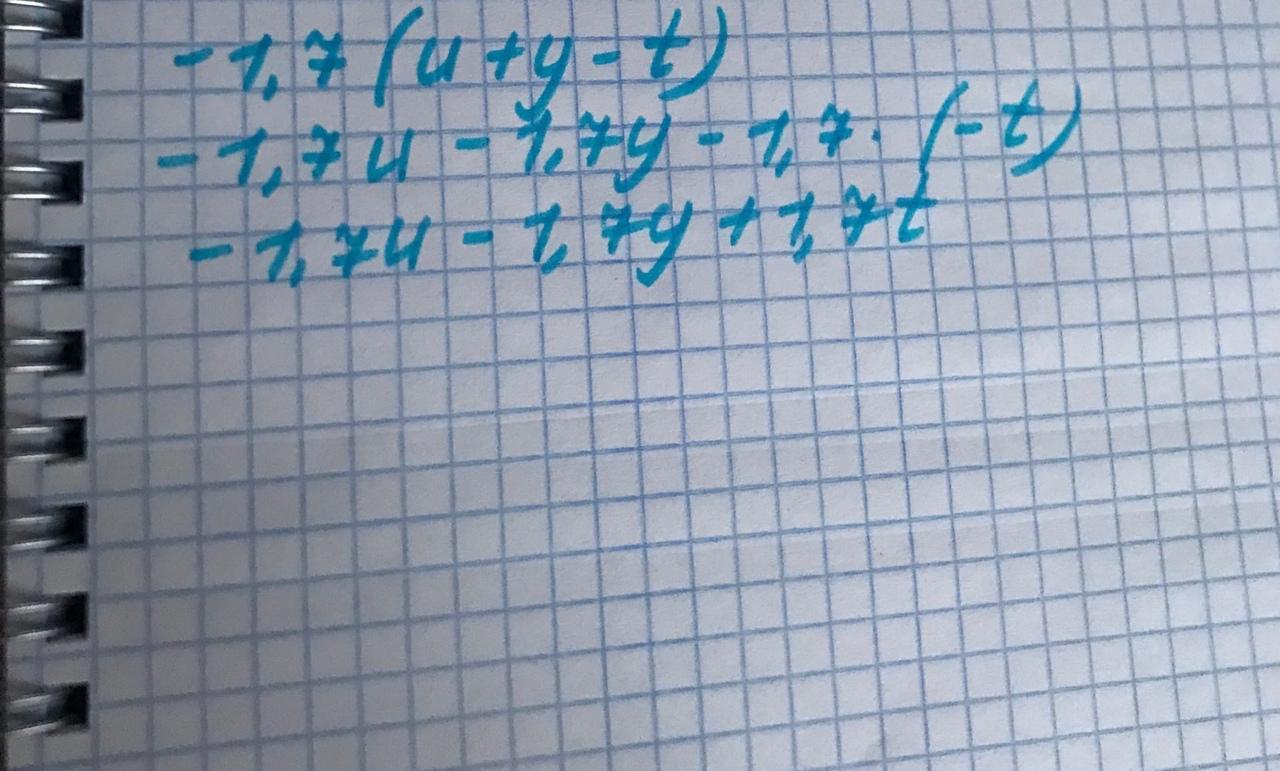 -1,7(u+y-t)
-1,7u-1,7y-1,7·(-t)
-1,7u-1,7y+1,7t